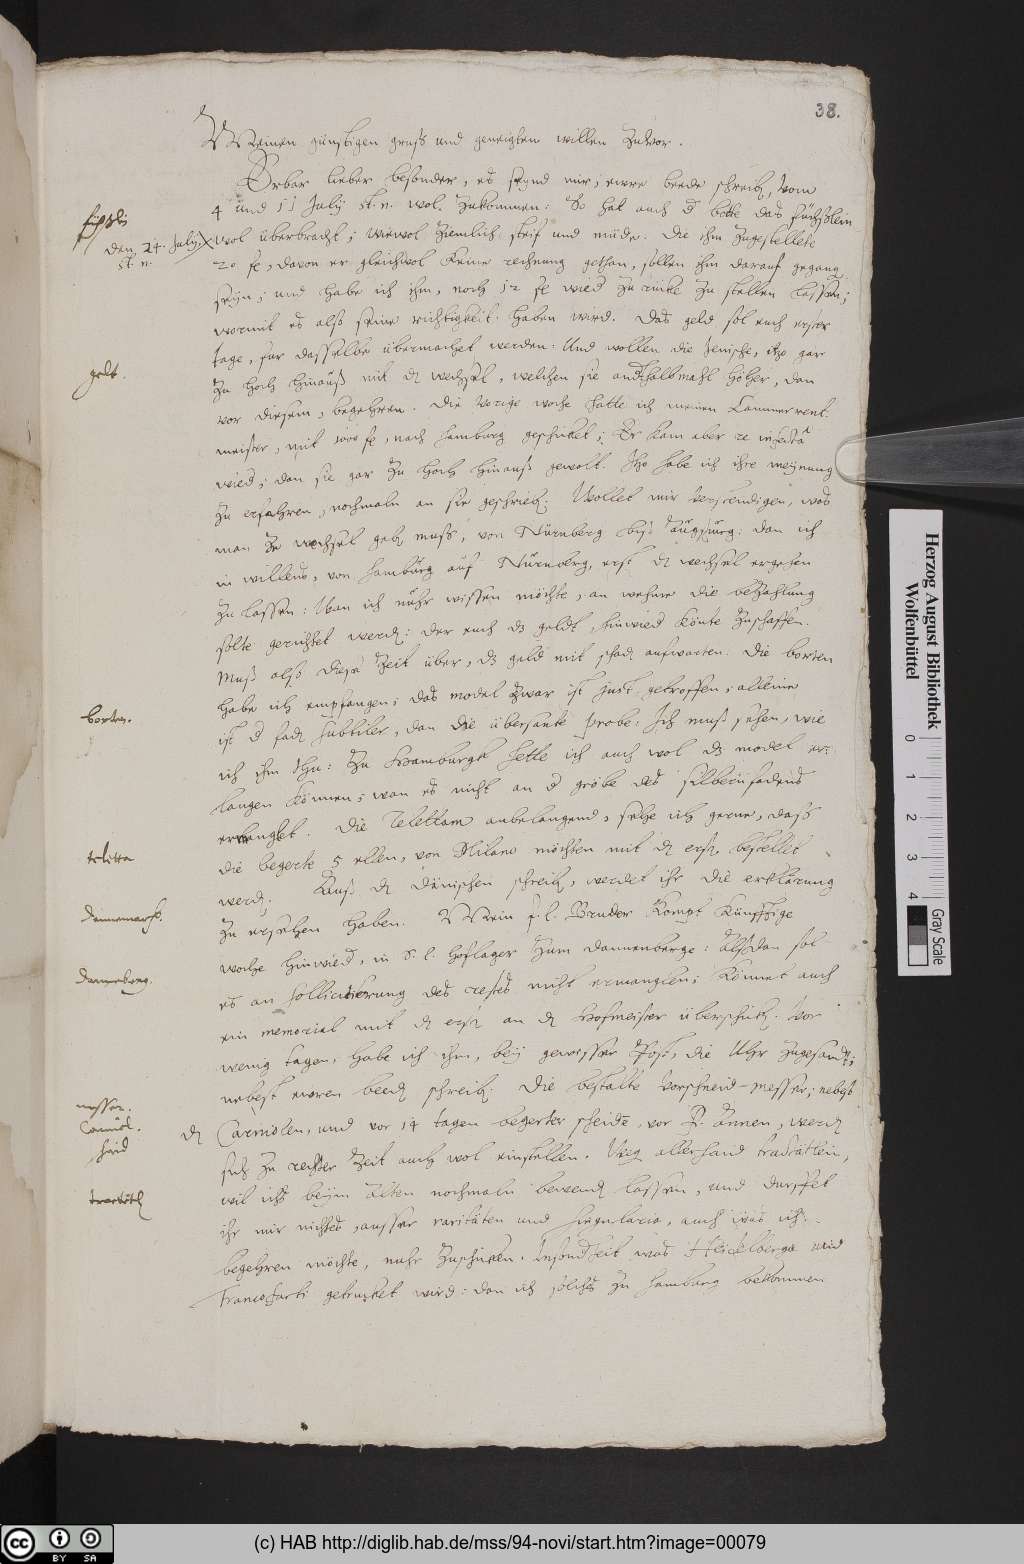 38.
Meinen günstigen gruß und geneigten willen Zuvor.
Erbar lieber besonder, es seynd mir, ewre beede schreib, vom
4 und 11 July st. n. wol Zukommen: So hat auch d botte das
den 24. July st. n.
wol überbracht; wiewol Ziemlich steif und müde. Die ihm Zugestellete
20 , davon er gleichwol Keine rechnung gethan, sollen ihm darauf gegang
seyn; und habe ich ihm, noch 12 wied Zu rücke Zu stellen lassen;
wormit es alß seine richtigkeit haben wird. Das geld sol euch erster
gelt.
tage, für dasselbe übermachet werden: Und wollen die Jenische, itzo gar
Zu hoch hinauß mit dz wechsel, welchen sie anderthalbmahl höher, dan
vor diesem, begehren. Die Vorige woche hatte ich meinen Cammer
meister, mit 1000 , nach Hamburg geschicket; Er kam aber re infectâ
wied; dan sie gar Zu hoch hinauß gewolt. Itzo habe ich ihre meynung
Zu erfahren, nochmaln an sie geschrieb. Wollet mir verstendigen, was
man Zu wechsel geb muß, von Nürnberg biß Augspurg: dan ich
in willens, von Hamburg auf Nürnberg, erst dz wechsel ergehen
Zu lassen: Wan ich nuhr wissen möchte, an wehme die beZahlung
solte gerichtet werd: der euch dz geldt, hinwied könte Zuschaffen.
Muß also diese Zeit über, dz geld mit schad aufwarten. Die borten
borten.
habe ich empfangen; das model Zwar ist just getroffen, alleine
ist d fad subtiler, dan die übersante probe: Ich muß sehen, wie
ich ihm thu: Zu Hamburgk hette ich auch wol dz model er-
langen können; wan es nicht an d gröbe des silbernfadens
ermanglet. Die Telettam anbelangend, sehe ich gerne, dass
teletta
die begerte 5 ellen, von Milano möchten mit dz erst, bestellet
werd. Auß dz Dänischen schreib, werdet ihr die erklärung
Dennemark.
Zu ersehen haben. Mein f. l. Bruder kompt künfftige
woche hinwied, in S. l. hoflager Zum Dannenberge: Alßdan sol
Dannenberg.
es an sollicitierung des restes nicht ermanglen; Könnet auch
ein memorial mit dz erst an dz Hofmeister überschick. Vor
wenig tagen, habe ich ihm, bey gewisser Post, die Uhr Zugesandt;
nebest ewren beed schreib. Die bestalte Vorschneid-messer, nebest
messer.
Carniol.
dz Carniolen, und vor 14 tagen begerter scheide, vor F. Annen, werd
scheid
sich Zu rechter Zeit auch wol einstellen. Weg allerhand tractätlein,
tractätl
wil ichs beym Alten nochmaln bewend lassen, und dürffet
ihr mir nichtes, ausser raritäten und singularia, auch was ich
begehren möchte, mehr Zuschicken. Insondheit was Heidelbergæ und
Francofurti getrucket wird: dan ich solches Zu Hamburg bekommen
Herzog August Bibliothek
Wolfenbüttel
0 1 2 3 4
Gray Scale
cc BY SA
(c) HAB http://diglib.hab.de/mss/94-novi/start.htm?image=00079